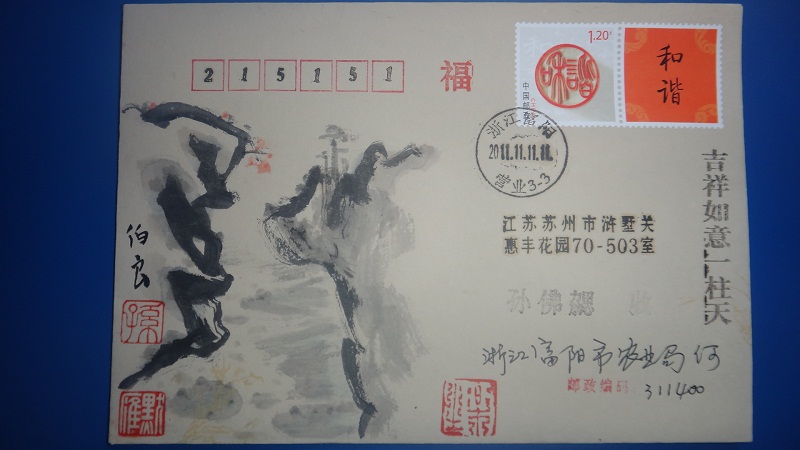 215151
福
1.20元
中国邮政
和谐
和
谐
浙江富阳
2011.11.11.11.
营业3-3
吉祥如意一柱天
江苏苏州市浒墅关
惠丰花园70-503室
孙佛
收
浙江富阳市农业局何
邮政编码 311400
伯良
孙